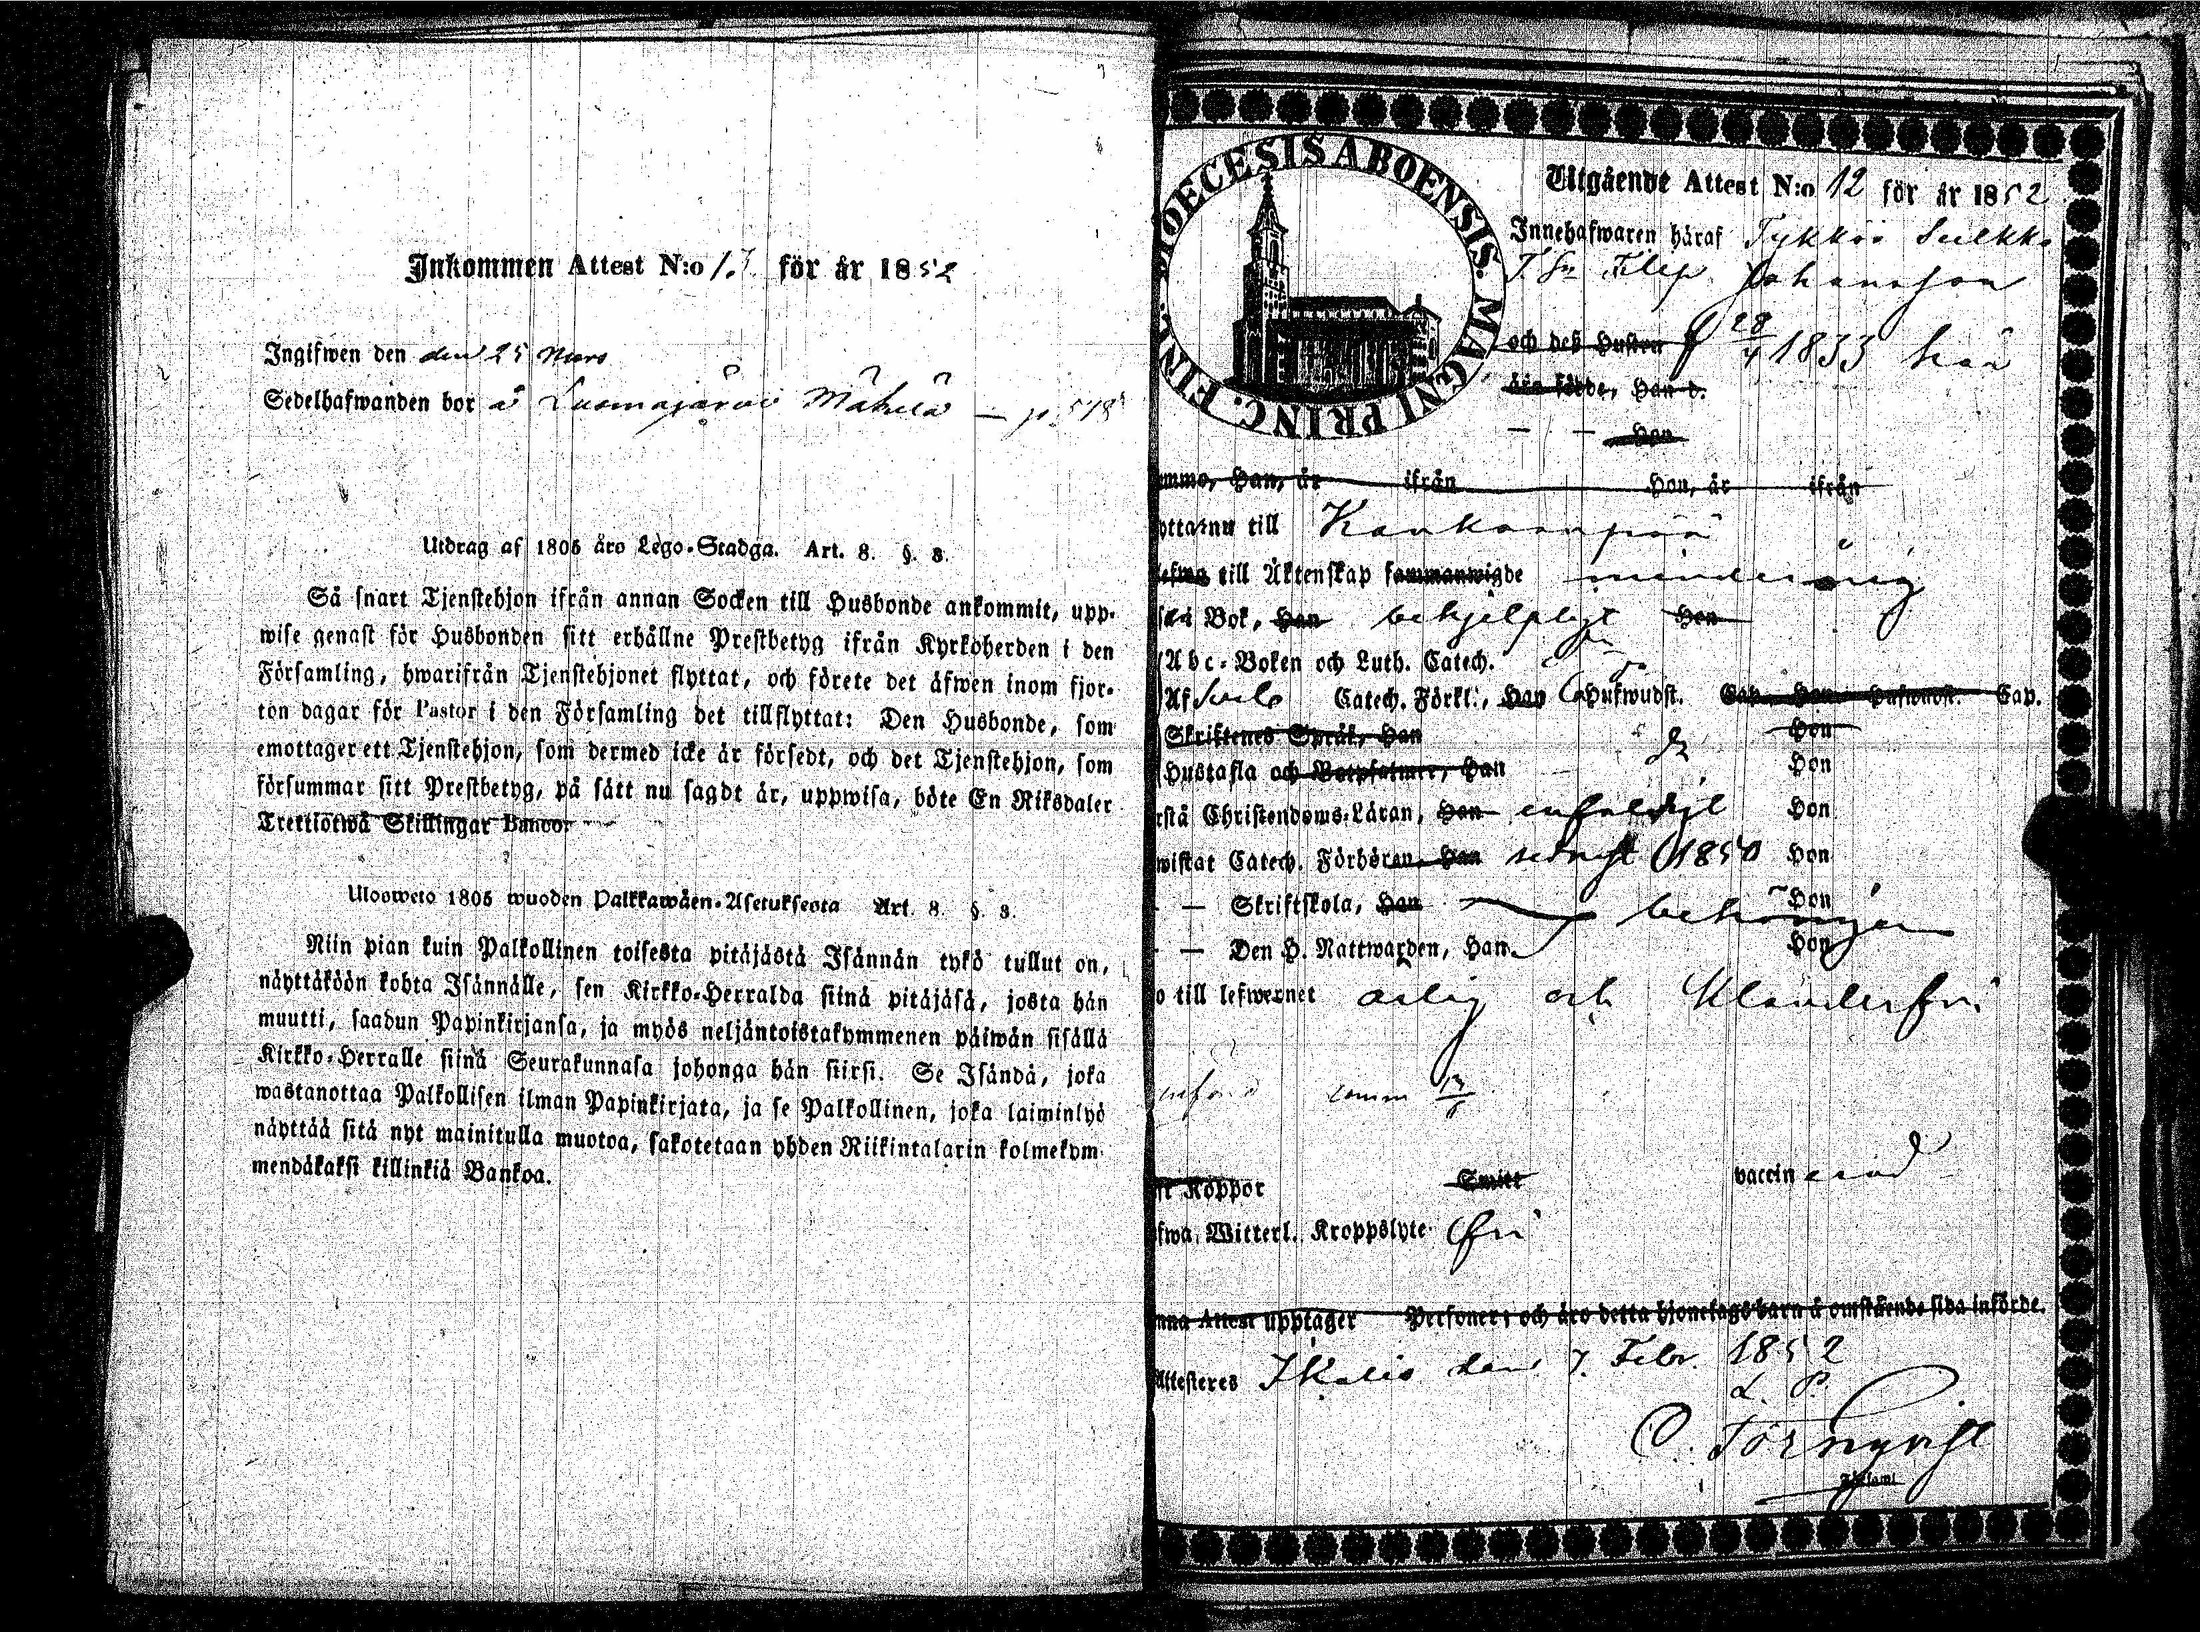 Inkommen Attest N:o 13 för år 1852
Ingifwen den den 25 Mars
Sedelhafwanden bor å Luomajärvi Mäkelä — p. 518
Utdrag af 1805 års Lego-Stadga. Art. 8. §. 8.
Så snart Tjenstehjon ifrån annan Socken till Husbonde ankommit, upp-
wise genast för Husbonden sitt erhållne Prestbetyg ifrån Kyrkoherden i den
Församling, hwarifrån Tjenstehjonet flyttat, och förete det äfwen inom fjor-
ton dagar för Pastor i den Församling det tillflyttat: Den Husbonde, som
emottager ett Tjenstehjon, som dermed icke är försedt, och det Tjenstehjon, som
försummar sitt Prestbetyg, på sätt nu sagdt är, uppwisa, böte En Riksdaler
Trettiotwå Skillingar Banco.
Ulosweto 1805 wuoden Palkkawäen-Asetuksesta Art. 8. §. 8.
Niin pian kuin Palkollinen toisesta pitäjästä Isännän tykö tullut on,
näyttäköön kohta Isännälle, sen Kirkko-Herralda siinä pitäjäsä, josta hän
muutti, saadun Papinkirjansa, ja myös neljäntoistakymmenen päiwän sisällä
Kirkko-Herralle siinä Seurakunnasa johonga hän siirsi. Se Isändä, joka
wastanottaa Palkollisen ilman Papinkirjata, ja se Palkollinen, joka laiminlyö
näyttää sitä nyt mainitulla muotoa, sakotetaan yhden Riikintalarin kolmekym-
mendäkaksi killinkiä Bankoa.
DIOECESIS ABOENSIS. MAGNI PRINC. FINL.
Utgående Attest N:o 12 för år 1852
Innehafwaren häraf Tykköö Sulkko
Filip Johansson
och deß Hustru f 28/4 1833 här
äro födde, Han d.
— — Hon
emmo, Han, är ifrån Hon, är ifrån
ytta nu till Kankaanpää
till Äktenskap sammanwigde minderårig
i Bok, Han behjelpligt Hon
Abc-Boken och Luth. Catech.
Af Catech. Förkl., Han Hufwudst. Cap. Hon Hufwudst. Cap.
Skriftenes Språk, Han Hon
Hustafla och Botpsalmer, Han Hon
rstå Christendoms-Läran, Han enfaldigt Hon
wistat Catech. Förhören, Han sednast 1850 Hon
— — Skriftskola, Han Hon
— — Den H. Nattwarden, Han behörigen Hon
o till lefwernet ärlig och klanderfri
Koppor Smitt vaccinerad
fwa. Witterl. Kroppslyte fri
nna Attest upptager Personer; och äro detta hjonelags barn å omstående sida införde.
Attesteres Ikalis den 7. Febr. 1852
L. P.
C. Törnqvist